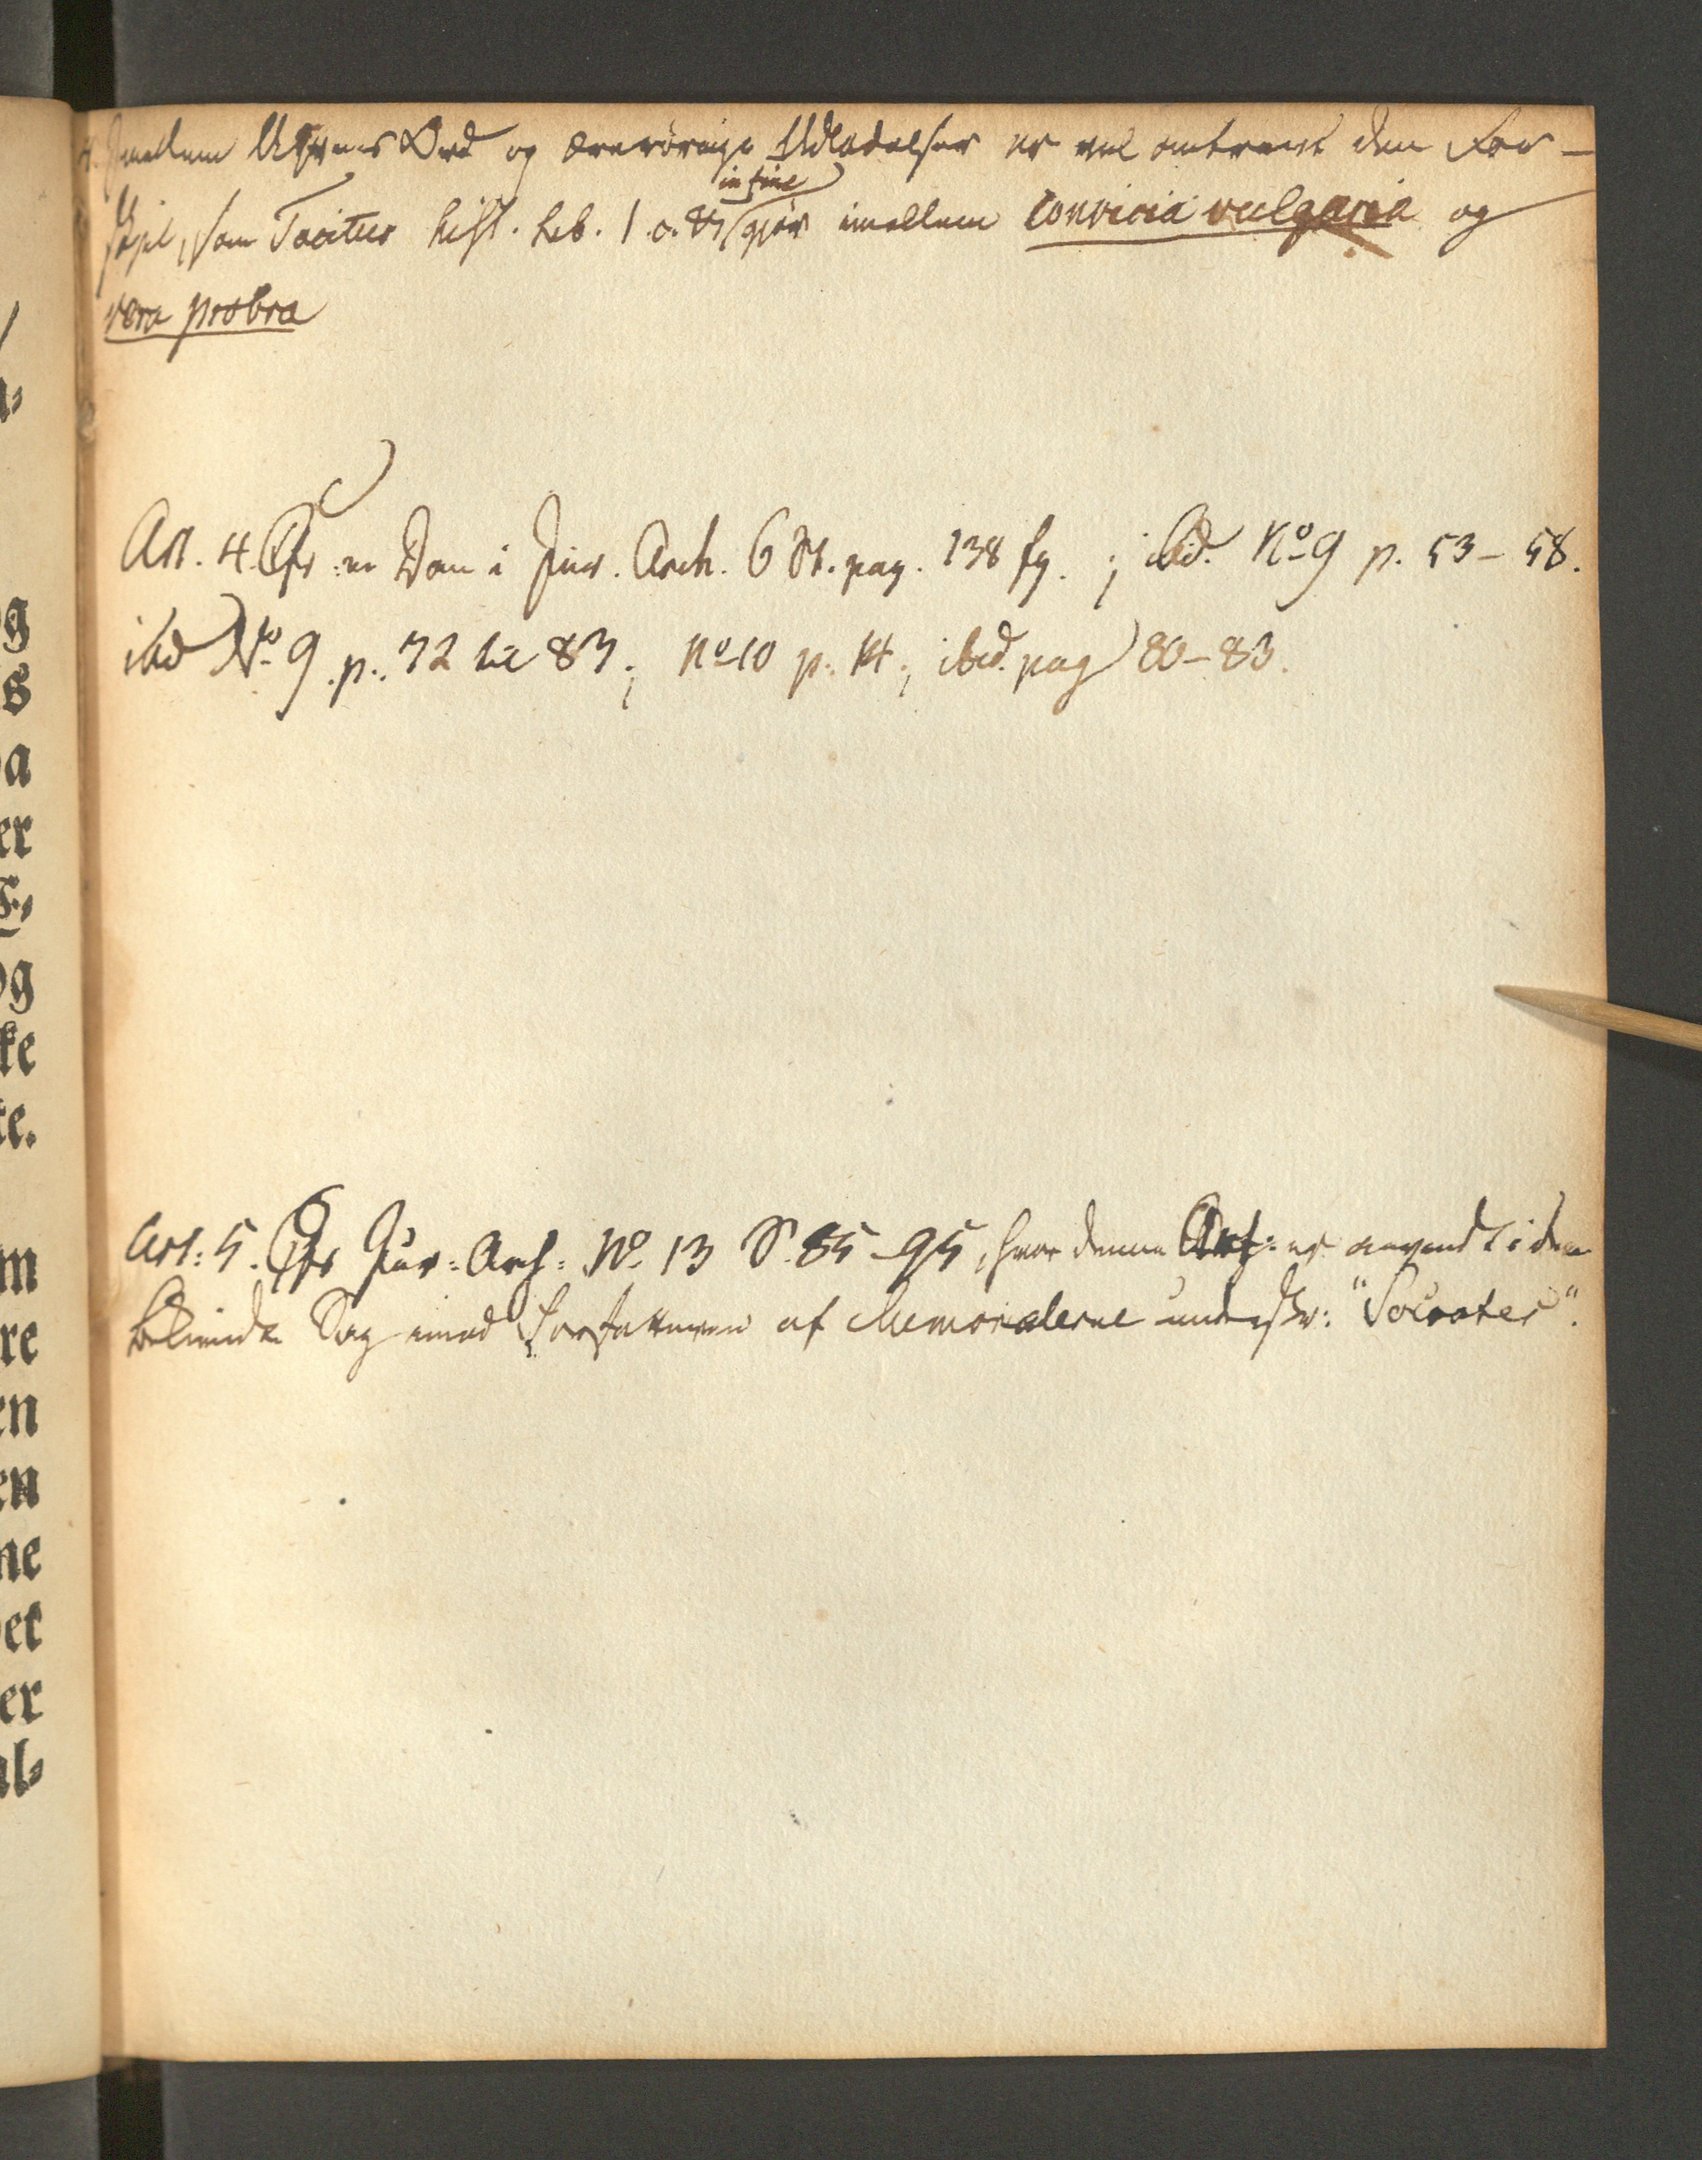 4. Imellem Uqvems Ord og ærerørige Udladelser er vel omtrent den For-
skjel, som Tacitus hist. Lib. 1 c. in fine gjør imellem convicia vulgaria og
vera probra
Art. 4. Cfr. en Dom i Jur. Arch. 6 St. pag. 138 fg. ; ibid. No 9 p. 53-58.
ibid No. 9 p. 72 til 83; No 10 p. 14; ibid. pag 80-83.
Art: 5. Cfr Jur: Arch: No. 13 S. 85-95, hvor denne Art: er anvendt i den
bekiendte Sag imod Forfatteren af Memorialerne underskr: "Socrates".
g
s
a
er
og
ke
te.
m
re
en
en
ne
et
er
al-